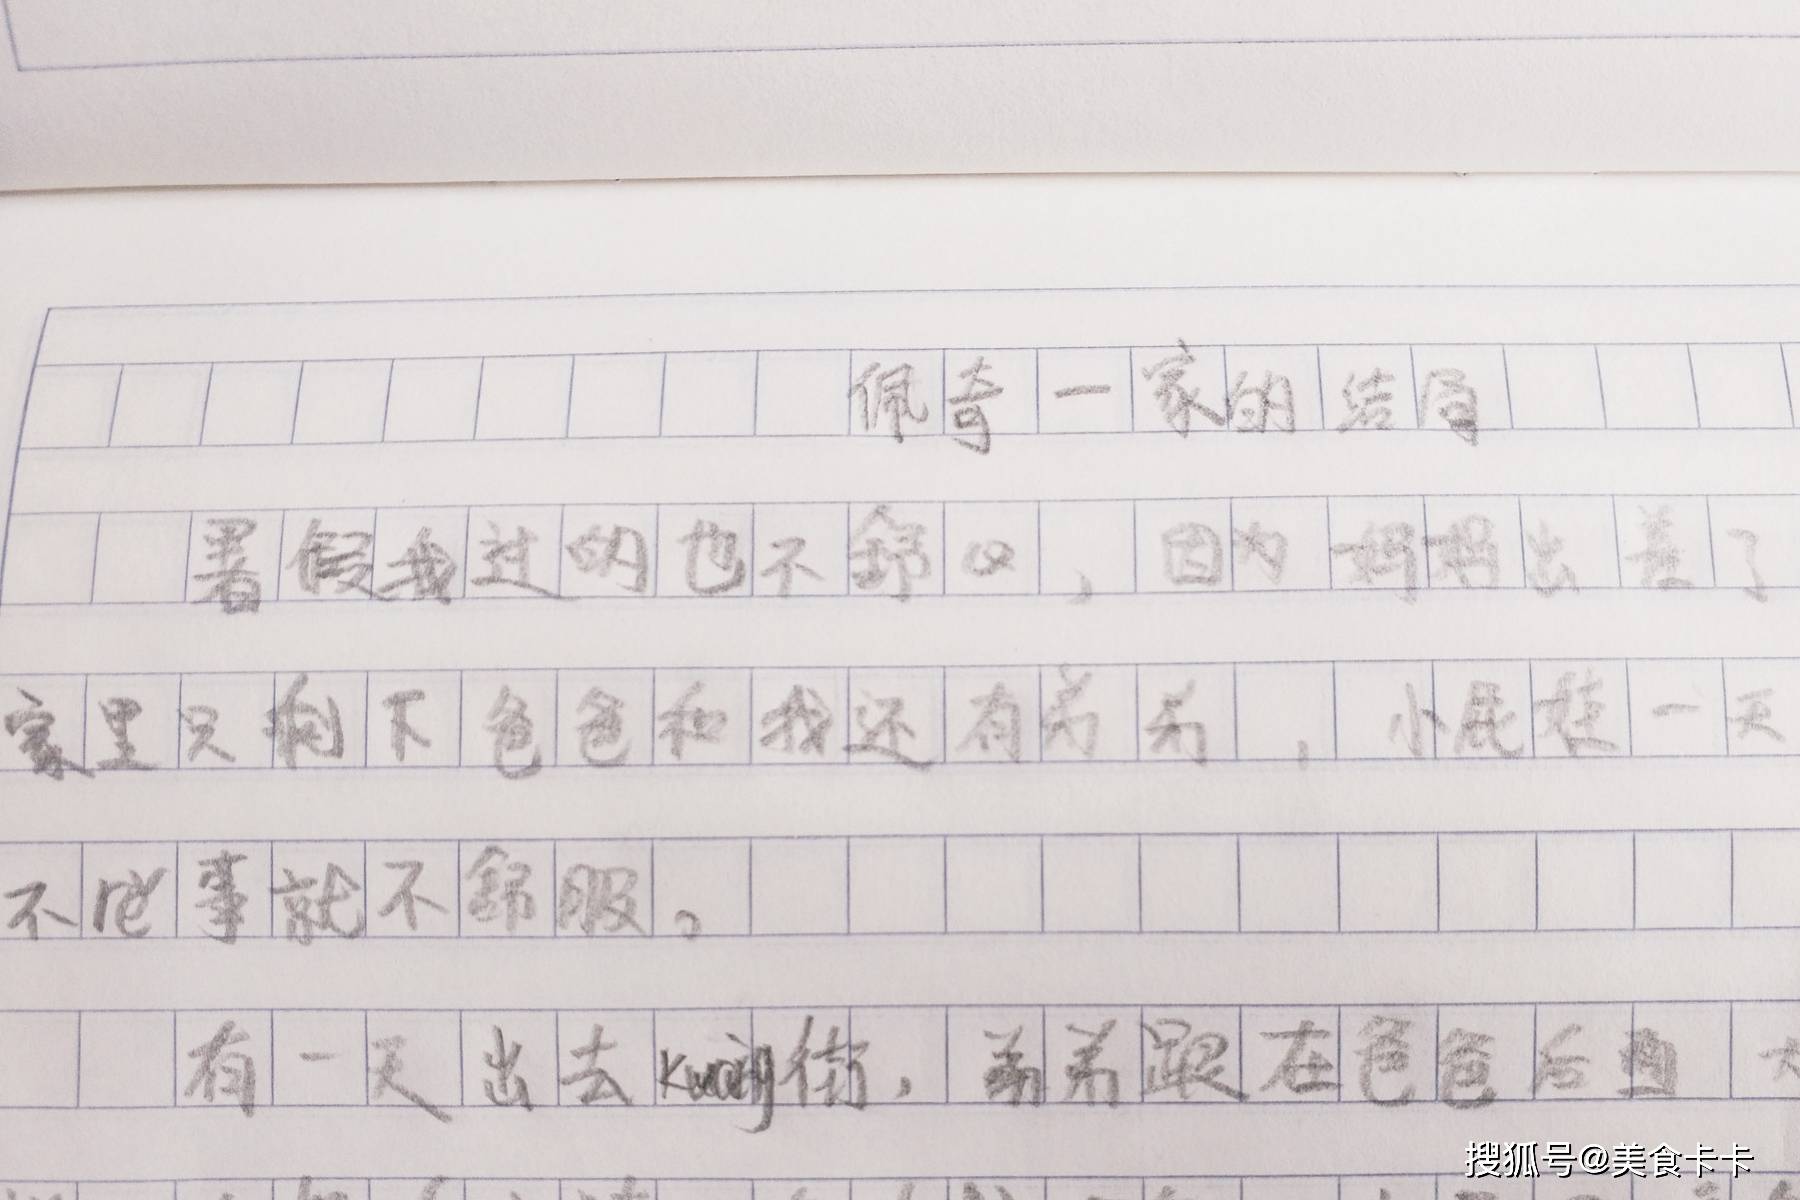 佩奇一家的结局
暑假我过的也不舒心，因为妈妈出差了
家里只剩下爸爸和我还有弟弟，小屁孩一天
不吃事就不舒服。
有一天出去kwang街，弟弟跟在爸爸后面
搜狐号@美食卡卡